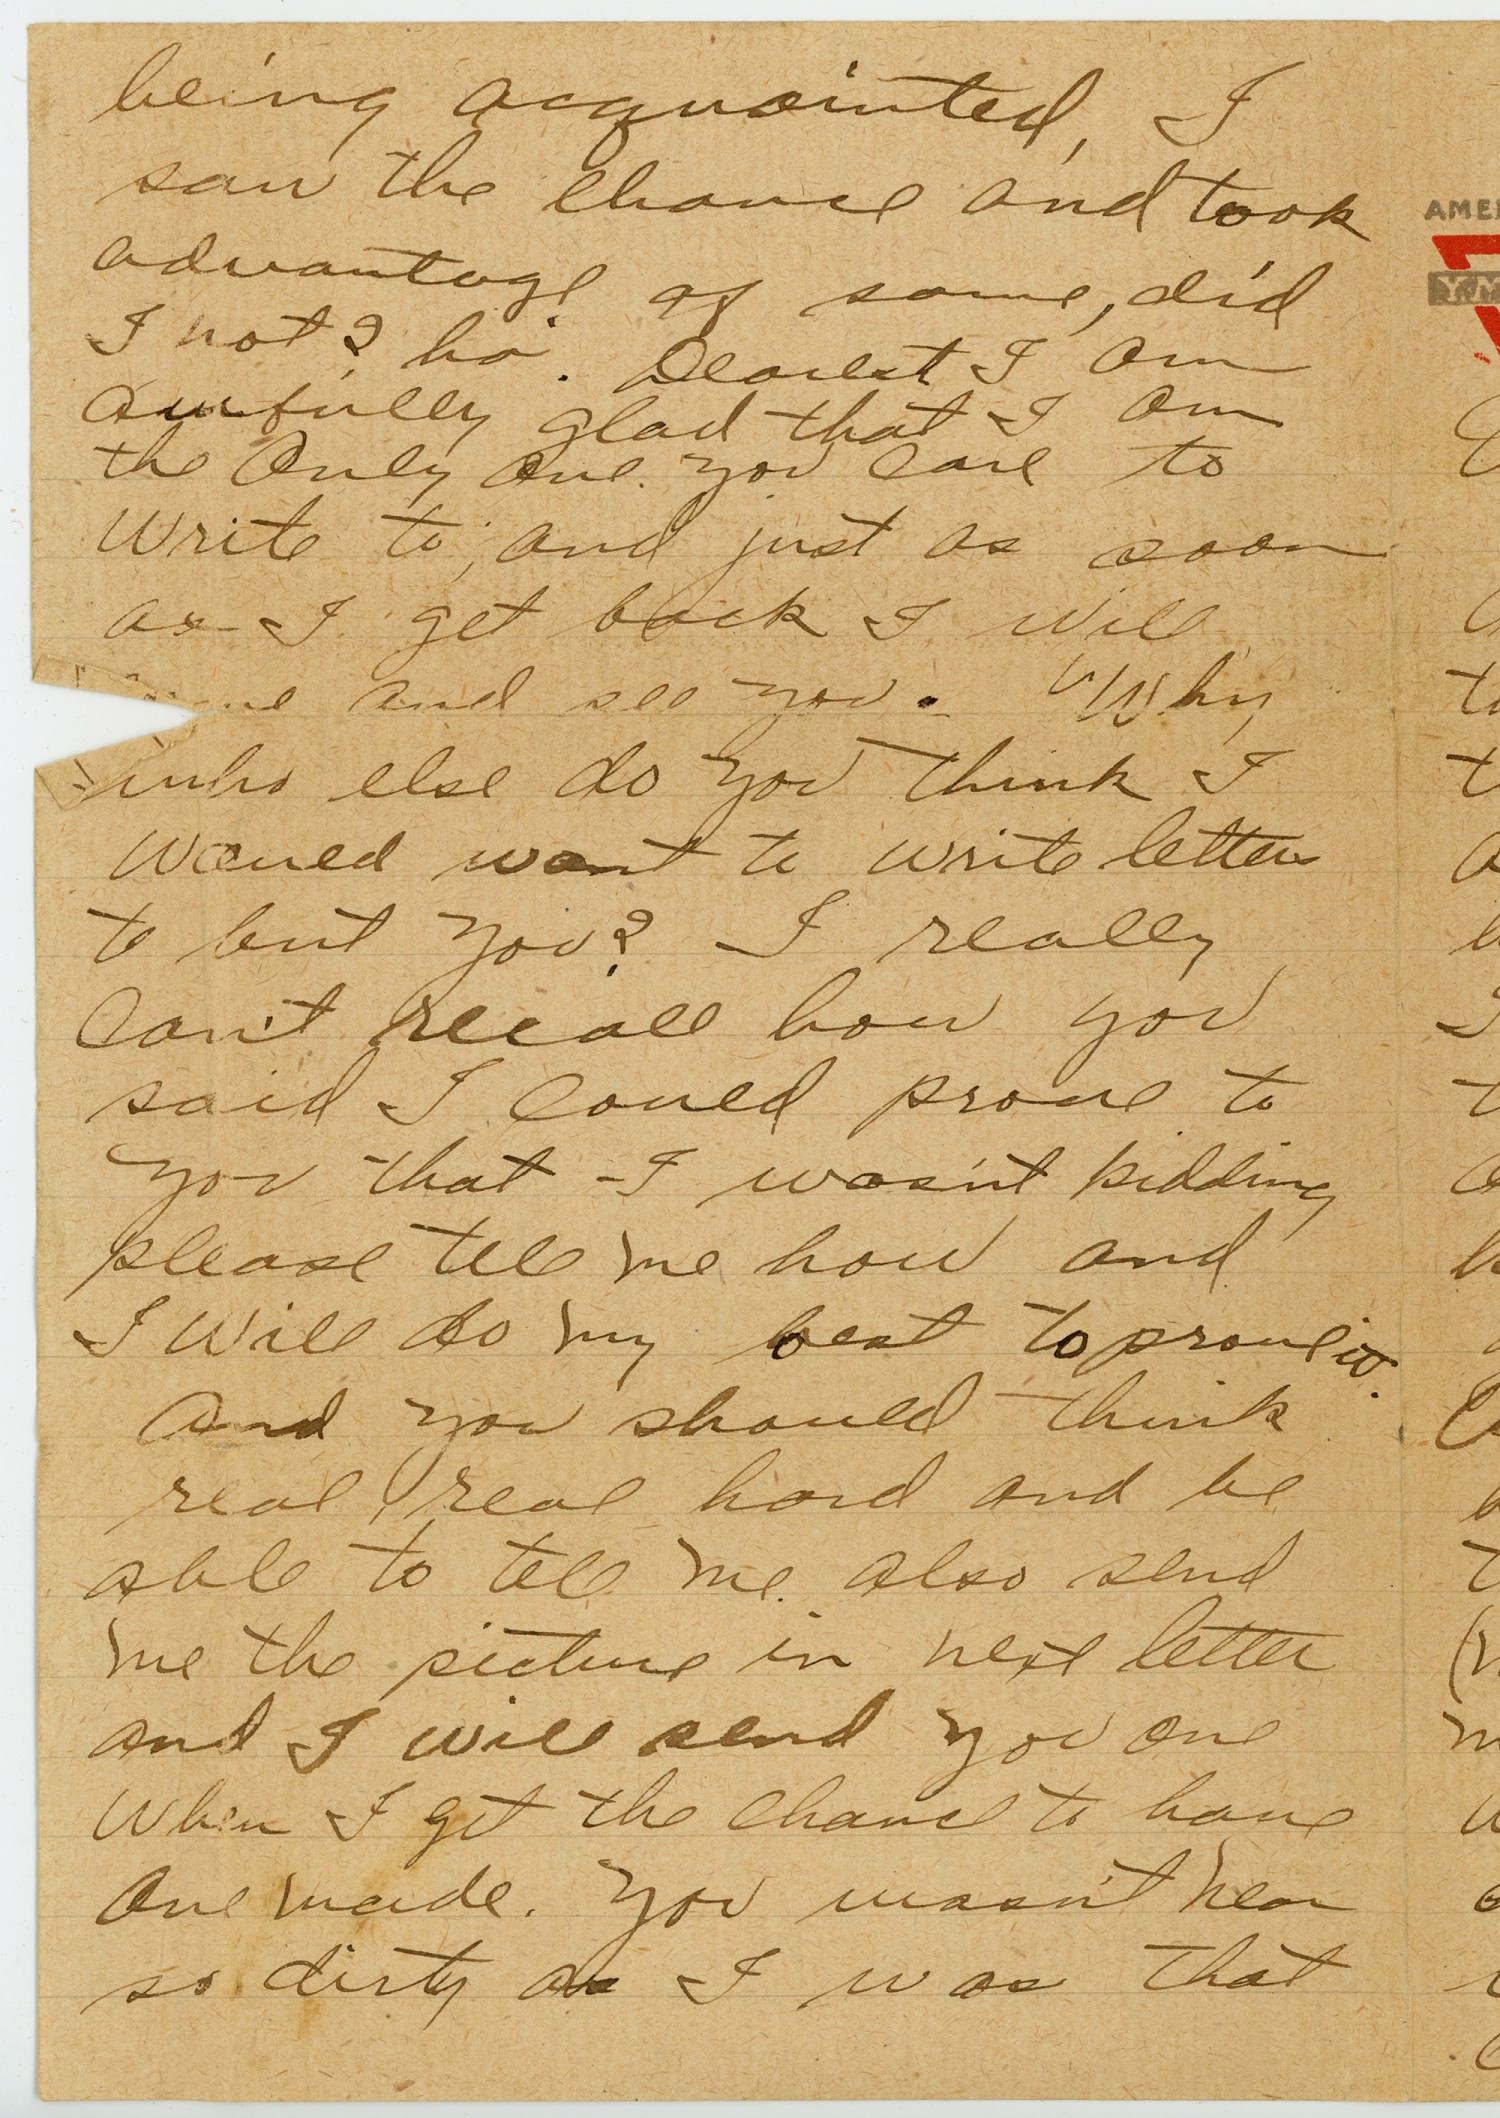 being acquainted, I
saw the chance and took
advantage of same, did
I not? ha. Dearest I am
awfully glad that I am
the only one you care to
write to, and just as soon
as I get back I will
and see you. Why,
who else do you think I
would want to write letters
to but you? I really
can't recall how you
said I could prove to
you that I wasn't kidding
please tell me how and
I will do my best to prove it.
And you should think
real, real hard and be
able to tell me. also send
me the picture in next letter
and I will send you one
when I get the chance to have
one made. You wasn't near
so dirty as I was that
AME
YM